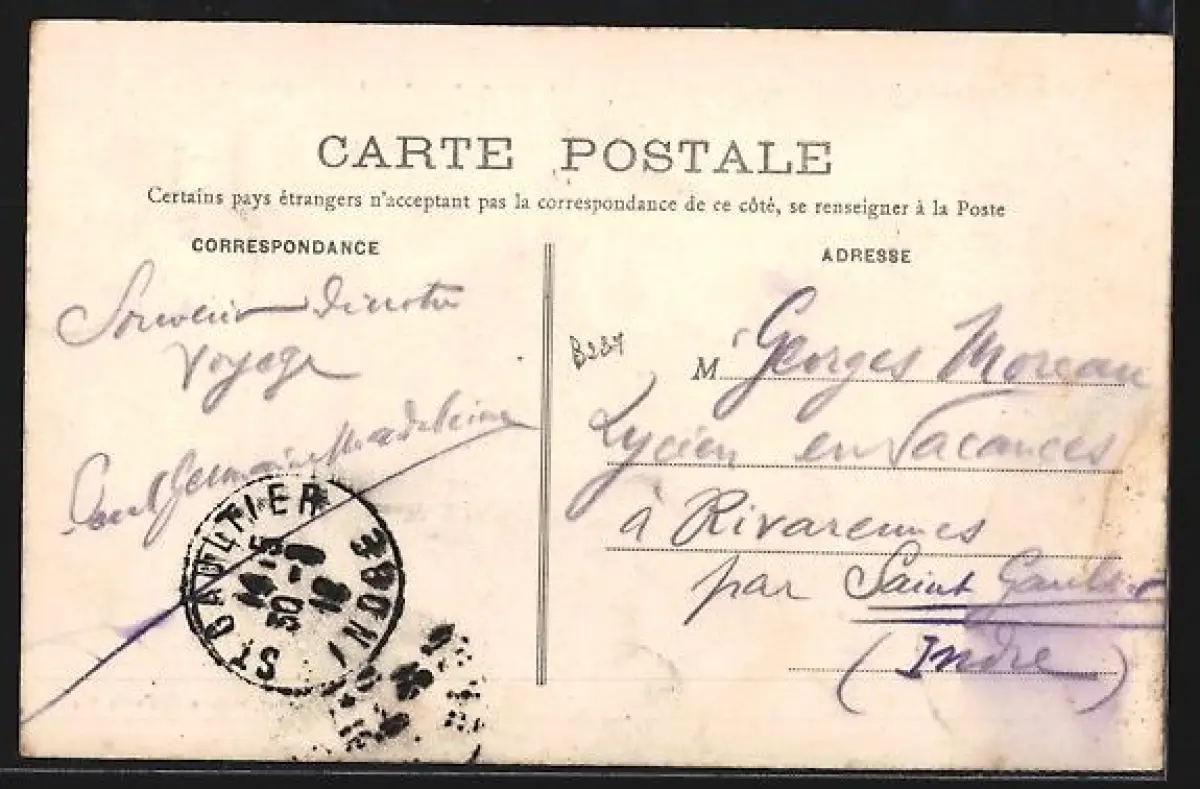 CARTE POSTALE
Certains pays étrangers n'acceptant pas la correspondance de ce côté, se renseigner à la Poste
CORRESPONDANCE
Souvenir de notre
voyage
Paul Germaine Madeleine
ST GAULTIER
INDRE
30
ADRESSE
B237
M Georges Moreau
Lycéen en Vacances
à Rivarennes
par Saint Gaultier
(Indre)